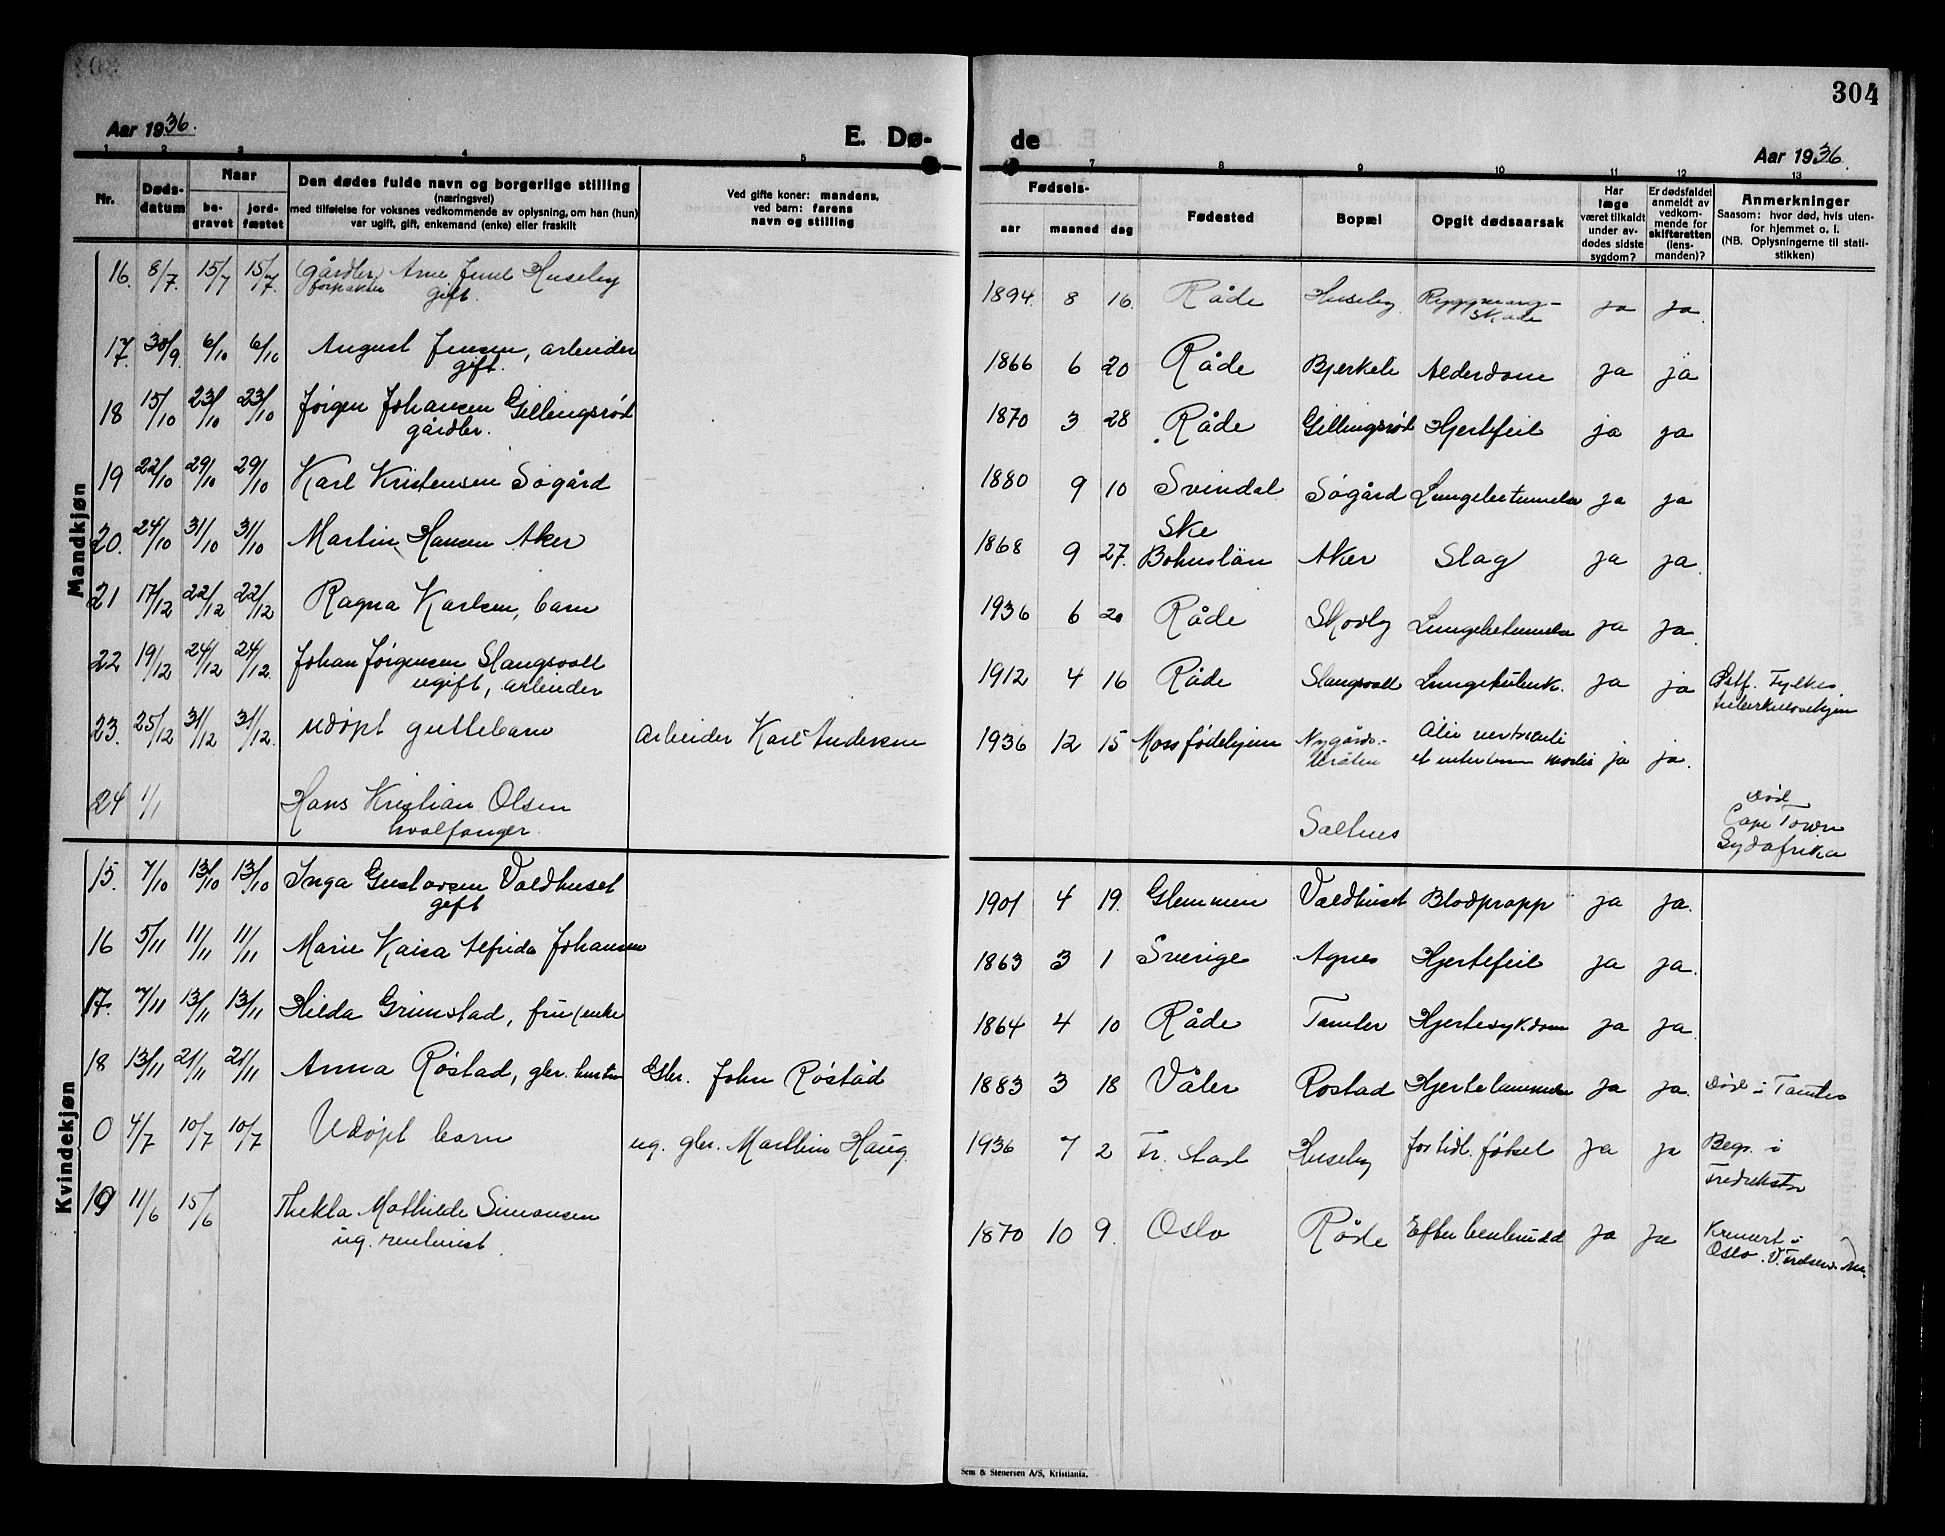 304
Aar 1936.
E. Dø-
de
Aar 1936.
1 2 3 4 5 7 8 9 10 11 12 13
Nr.
Døds-
datum
Naar
be-
gravet
jord-
fæstet
Den dødes fulde navn og borgerlige stilling
(næringsvei)
med tilføielse for voksnes vedkommende av oplysning, om han (hun)
var ugift, gift, enkemand (enke) eller fraskilt
Ved gifte koner: mandens,
ved barn: farens
navn og stilling
Fødsels-
aar
maaned
dag
Fødested
Bopæl
Opgit dødsaarsak
Har
læge
været tilkaldt
under av-
dødes sidste
sygdom?
Er dødsfaldet
anmeldt av
vedkom-
mende for
skifteretten
(lens-
manden)?
Anmerkninger
Saasom: hvor død, hvis uten-
for hjemmet o. l.
(NB. Oplysningerne til stati-
stikken)
Mandkjøn
16. 8/7. 15/7 15/7. (gårdbr) Arne Huseby 1894 8 16. Råde Huseby Ryggmarg- ja ja.
forpakter gift. skade
17. 30/9. 6/10 6/10 August Jensen, arbeider 1866 6 20 Råde Bjerkeli Alderdom ja ja
gift.
18 15/10 23/10 23/10 Jörgen Johansen Gillingsröd 1870 3 28 Råde Gillingsröd Hjertefeil ja ja
gårdbr.
19 22/10 29/10 29/10 Karl Kristensen Sögård 1880 9 10 Svindal Sögård Lungebetennelse ja ja
20. 24/10 31/10 31/10 Martin Hansen Aker 1868 9 27. Ske
Bohuslän Aker Slag ja ja.
21 17/12 22/12 22/12 Ragna Karlsen, barn 1936 6 20 Råde Skovly Lungebetennelse ja ja.
22 19/12 24/12 24/12. Johan Jörgensen Slangsvoll 1912 4 16 Råde Slangsvoll Lungetuberk. ja ja Østf. Fylkes
ugift, arbeider tuberkulosehjem
23. 25/12 31/12 31/12. udöpt guttebarn Arbeider Karl Andersen 1936 12 15 Moss födehjem Nygårds-
bråten ja ja.
24 1/1 Hans Kristian Olsen Saltnes Död
hvalfanger. Cape Town
Sydafrika
Kvindekjøn
15. 7/10 13/10 13/10 Inga Gustavsen Valdhuset 1901 4 19. Glemmen Valdhuset Blodpropp ja ja.
gift
16 5/11 11/11 11/11 Marie Kaisa Alfrida Johansen 1863 3 1 Sverige Agnes Hjertefeil ja ja.
17. 7/11 13/11 13/11 Hilda Grimstad, fru (enke 1864 4 10 Råde Tomter Hjertesykdom ja ja.
18 13/11 21/11 21/11 Anna Röstad, gbr. hustru Gbr. John Röstad 1883 3 18 Våler Rostad Hjertelammelse ja ja. Död i Tomter
0 4/7 10/7 10/7 Udöpt barn ug. gbr. Marthin Haug. 1936 7 2 Fr. stad Huseby for tidl. födsel ja ja Begr. i
Fredrikstad
19 11/6 15/6 Thekla Mathilde Simonsen 1870 10 9. Oslo Råde Efter benbrudd ja ja Kremert i
ug. rentenist. Oslo.
Sem & Stenersen A/S, Kristiania.